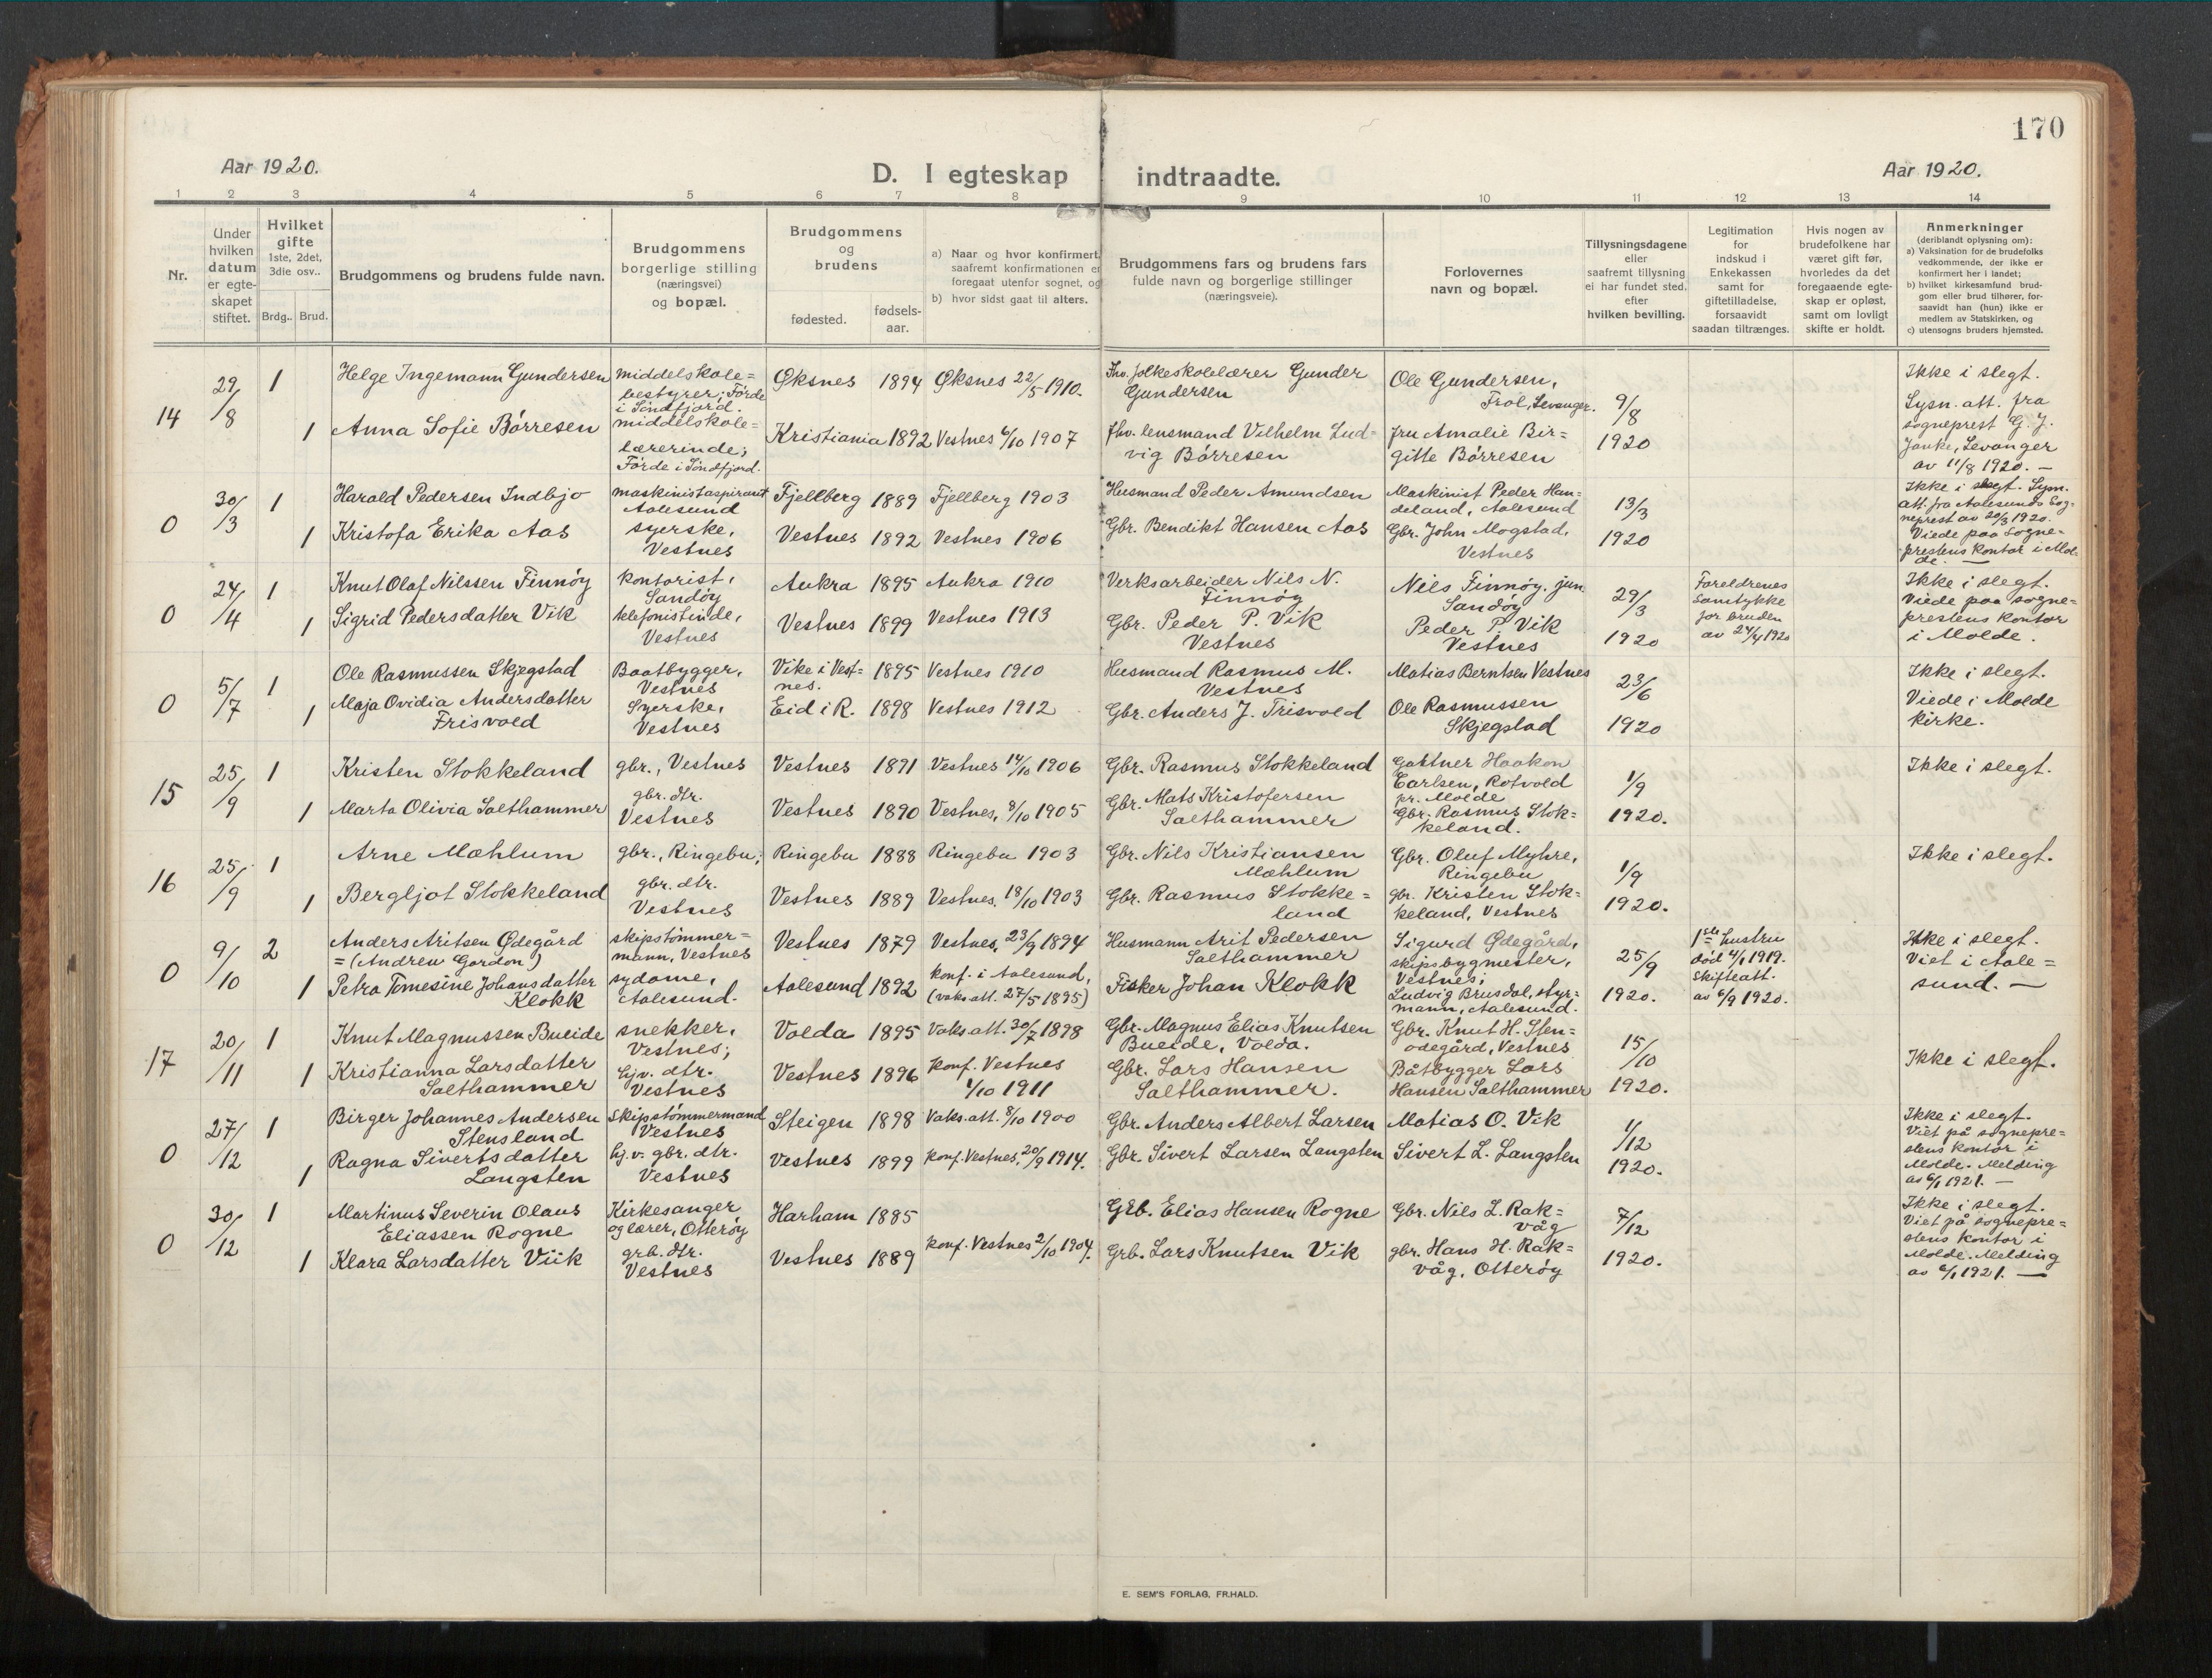 170
Aar 1920.
D. I egteskap indtraadte.
Aar 1920.
1 2 3 4 5 6 7 8 9 10 11 12 13 14
Nr.
Under
hvilken
datum
er egte-
skapet
stiftet.
Hvilket
gifte
1ste, 2det,
3die osv..
Brdg.. Brud.
Brudgommens og brudens fulde navn.
Brudgommens
borgerlige stilling
(næringsvei)
og bopæl.
Brudgommens
og
brudens
fødested.
fødsels-
aar.
a) Naar og hvor konfirmert,
saafremt konfirmationen er
foregaat utenfor sognet, og
b) hvor sidst gaat til alters.
Brudgommens fars og brudens fars
fulde navn og borgerlige stillinger
(næringsveie).
Forlovernes
navn og bopæl.
Tillysningsdagene
eller
saafremt tillysning
ei har fundet sted,
efter
hvilken bevilling.
Legitimation
for
indskud i
Enkekassen
samt for
giftetilladelse,
forsaavidt
saadan tiltrænges.
Hvis nogen av
brudefolkene har
været gift før,
hvorledes da det
foregaaende egte-
skap er opløst,
samt om lovligt
skifte er holdt.
Anmerkninger
(deriblandt oplysning om):
a) Vaksination for de brudefolks
vedkommende, der ikke er
konfirmert her i landet;
b) hvilket kirkesamfund brud-
gom eller brud tilhører, for-
saavidt han (hun) ikke er
medlem av Statskirken, og
c) utensogns bruders hjemsted.
14
29/8
1
Helge Ingemann Gundersen
middelskole=
bestyrer; Førde
i Søndfjord.
Øksnes 1894 Øksnes 22/5 1910.
Fhv. folkeskolelærer Gunder
Gundersen
Ole Gundersen,
Frol, Levanger.
9/8
1920
Ikke i slegt.
Lysn. att. fra
sogneprest G. J.
Levanger
av 11/8 1920. —
1
Anna Sofie Børresen
middelskole=
lærerinde;
Førde i Søndfjord.
Kristiania 1892 Vestnes 6/10 1907
fhv. lensmand Vilhelm Lud=
vig Børresen
fru Amalie Bir=
gitte Børresen
0
30/3
1
Harald Pedersen Indbjo
maskinistaspirant
Aalesund
Fjellberg 1889 Fjellberg 1903
Husmand Peder Amundsen
Maskinist Peder Han=
deland, Aalesund
13/3
1920
Ikke i slegt. Lysn.
att. fra Aalesunds Sog-
neprest av 20/3 1920.
Viede paa Sogne=
prestens kontor i Mol-
de. —
1
Kristofa Erika Aas
syerske,
Vestnes
Vestnes 1892 Vestnes 1906
Gbr. Bendikt Hansen Aas
Gbr. John Mogstad,
Vestnes
0
24/4
1
Knut Olaf Nilssen Finnøy
kontorist,
Sandøy
Aukra 1895 Aukra 1910
Verksarbeider Nils N.
Finnøy
Nils Finnøy. jun.
Sandøy
29/3
1920
Foreldrenes
Samtykke
for bruden
av 24/4 1920
Ikke i slegt.
Viede paa sogne=
prestens kontor
i Molde.
1
Sigrid Pedersdatter Vik
telefonistinde,
Vestnes
Vestnes 1899 Vestnes 1913
Gbr. Peder P. Vik
Vestnes
Peder P. Vik
Vestnes
0
5/7
1
Ole Rasmussen Skjegstad
Baatbygger,
Vestnes
Vike i Vest=
nes.
1895 Vestnes 1910
Husmand Rasmus M.
Vestnes
Matias Berntsen Vestnes
23/6
1920
Ikke i slegt.
Viede i Molde
kirke.
1
Maja Ovidia Andersdatter
Frisvold
Syerske,
Vestnes
Eid i R. 1898 Vestnes 1912
Gbr. Anders J. Frisvold
Ole Rasmussen
Skjegstad
15
25/9
1
Kristen Stokkeland
gbr., Vestnes
Vestnes 1891 Vestnes 14/10 1906
Gbr. Rasmus Stokkeland
Gartner Haakon
Carlsen, Rotvold
pr. Molde
1/9
1920.
Ikke i slegt.
1
Marta Olivia Salthammer
gbr. dtr.
Vestnes
Vestnes 1890 Vestnes, 8/10 1905
Gbr. Mats Kristofersen
Salthammer
Gbr. Rasmus Stok=
keland.
16
25/9
1
Arne Mæhlum
gbr., Ringebu;
Ringebu 1888 Ringebu 1903
Gbr. Nils Kristiansen
Mæhlum
Gbr. Oluf Myhre,
Ringebu
1/9
1920.
Ikke i slegt.
1
Bergljot Stokkeland
gbr. dtr.
Vestnes
Vestnes 1889 Vestnes, 18/10 1903
Gbr. Rasmus Stokke=
land
gbr. Kristen Stok=
keland, Vestnes
0
9/10
2
Anders Aritsen Ødegård
=(Andrew Gordon)
skipstømmer=
mann, Vestnes
Vestnes 1879 Vestnes, 23/9 1894
Husmann Arit Pedersen
Salthammer
Sigurd Ødegård,
skipsbygmester,
Vestnes;
25/9
1920.
1ste hustru
død 4/1 1919.
Skifteatt.
av 6/9 1920.
Ikke i slegt.
Viet i Aale=
sund. —
1
Petra Tomesine Johansdatter
Klokk
sydame,
Aalesund.
Aalesund 1892
konf. i Aalesund,
(vaks. att. 27/5 1895)
Fisker Johan Klokk
Ludvig Brusdal, styr=
mann, Aalesund.
17
20/11
1
Knut Magnussen Bueide
snekker,
Vestnes;
Volda 1895 Vaks. att. 30/7 1898
Gbr. Magnus Elias Knutsen
Bueide, Volda.
Gbr. Knut H. Sten=
ødegård, Vestnes
15/10
1920.
Ikke i slegt.
1
Kristianna Larsdatter
Salthammer
hjv. dtr.
Vestnes
Vestnes 1896
konf. Vestnes
1/10 1911
Gbr. Lars Hansen
Salthammer.
Båtbygger Lars
Hansen Salthammer
0
27/12
1
Birger Johannes Andersen
Stensland
Skipstømmermand
Vestnes
Steigen 1898 Vaks. att. 8/10 1900
Gbr. Anders Albert Larsen
Matias O. Vik
1/12
1920.
Ikke i slegt.
Viet på sognepre=
stens kontor i
Molde. Melding
av 6/1 1921. —
1
Ragna Sivertsdatter
Langsten
hj. v. gbr. dtr.
Vestnes
Vestnes 1899 konf. Vestnes, 20/9 1914.
Gbr. Sivert Larsen Langsten
Sivert L. Langsten
0
30/12
1
Martinus Severin Olaus
Eliassen Rogne
Kirkesanger
og lærer, Otterøy
Harham 1885
Grb. Elias Hansen Rogne
Gbr. Nils L. Rak=
våg
7/12
1920.
Ikke i slegt.
Viet på sognepre=
stens kontor i
Molde. Melding
av 6/1 1921. —
1
Klara Larsdatter Viik
grb. dtr.
Vestnes
Vestnes 1889
konf. Vestnes 2/10 1904.
Grb. Lars Knutsen Vik
gbr. Hans H. Rak=
våg, Otterøy
E. SEM'S FORLAG, FR.HALD.